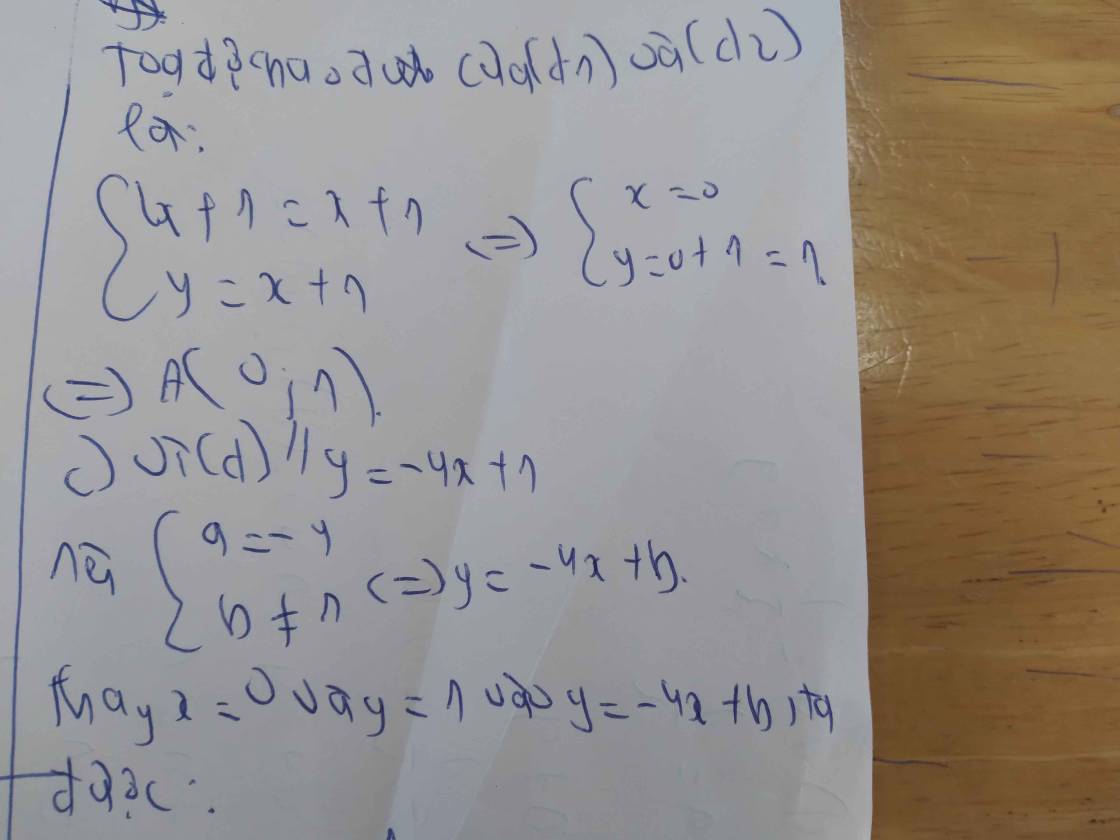 Toạ độ giao điểm của (d1) và (d2)
là:
{ 4x + 1 = x + 1 <=> { x = 0
y = x + 1 y = 0 + 1 = 1.
<=> A(0 ; 1).
c) Vì (d) // y = -4x + 1
nên { a = -4
b ≠ 1 <=> y = -4x + b.
Thay x = 0 và y = 1 vào y = -4x + b, ta
được: